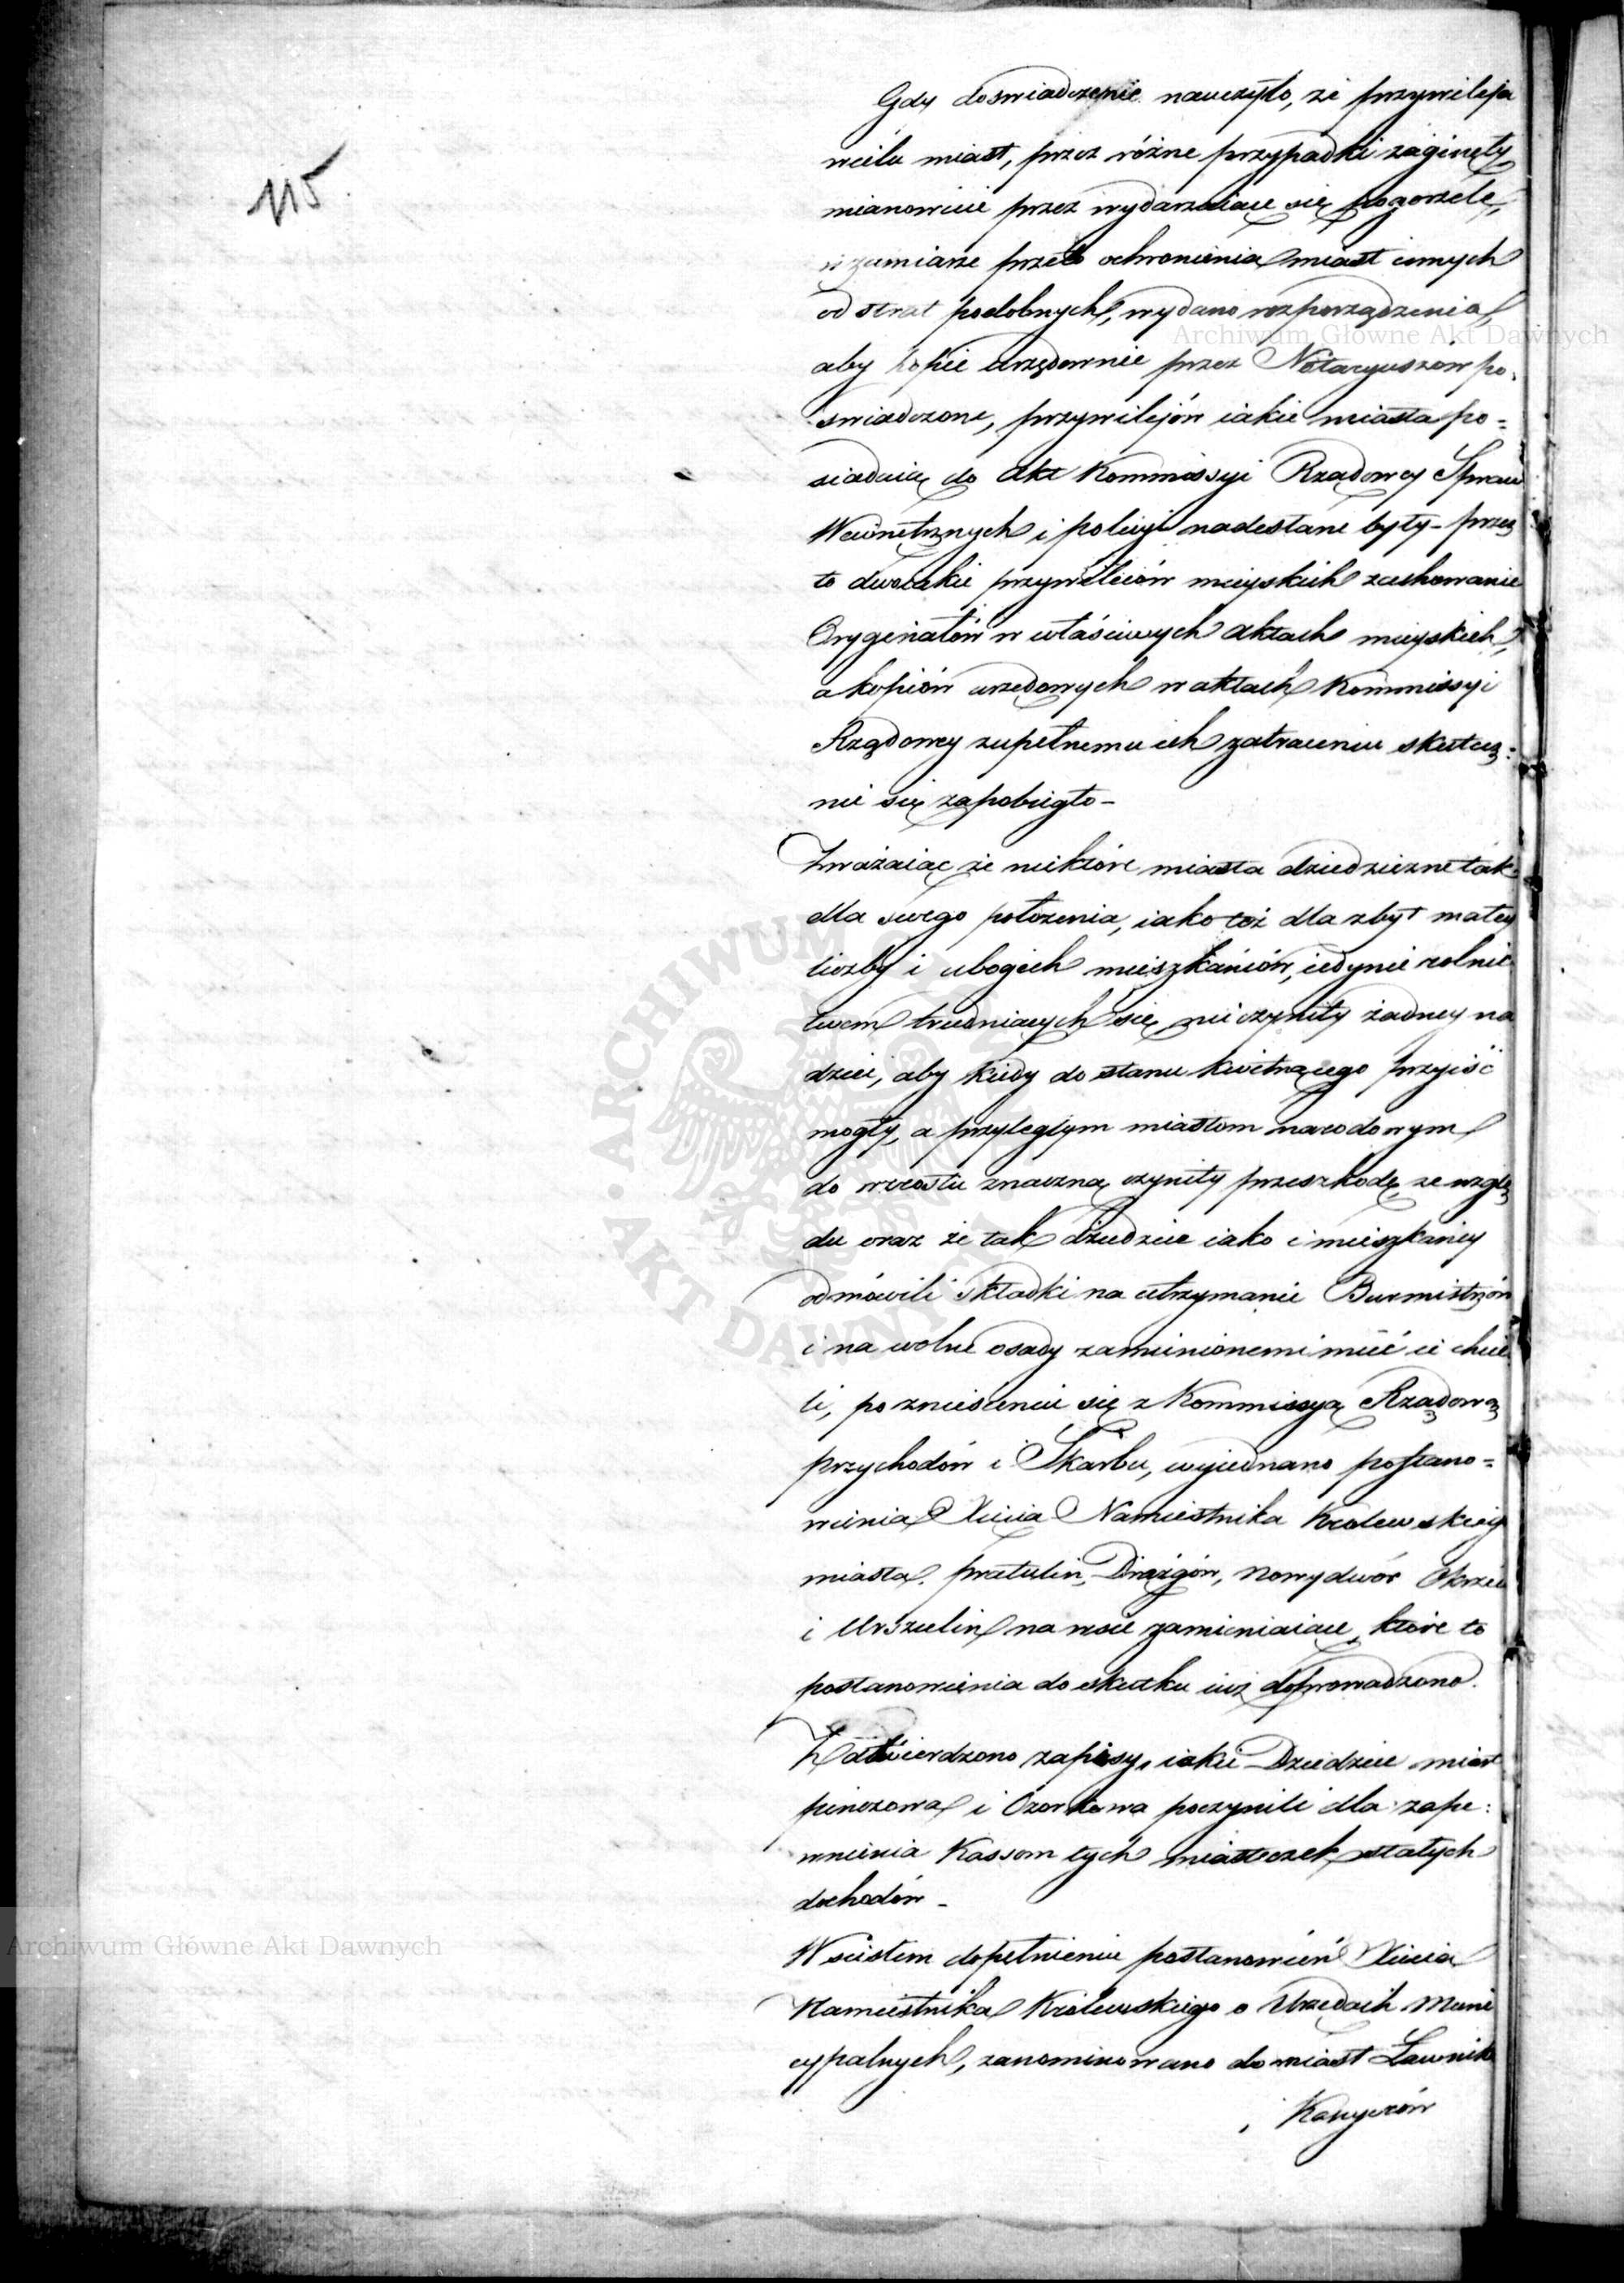 115.
Gdy doswiadczenie nauczyło, że przywileja
wielu miast, przez różne przypadki zaginęły,
mianowicie przez wydarzaiące się pogorzele,
w zamiarze przeto ochronienia miast innych
od strat podobnych, wydano rozporządzenia,
Archiwum Główne Akt Dawnych
aby kopie urzędownie przez Notaryuszów po-
swiadczone, przywilejów iakie miasta po-
siadaią do Akt Kommissyi Rządowey Spraw
Wewnętrznych i policyi nadesłane były – przez
to dwoiakie przywileiów mieyskich zachowanie
Oryginałów w właściwych aktach mieyskich,
a kopiów urzędowych w aktach Kommissyi
Rządowey zupełnemu ich zatraceniu skutecz:
nie się zapobiegło –
Zważaiąc że niektóre miasta dziedziczne tak
dla swego położenia, iako też dla zbyt małey
liczby i ubogich mieszkańców, iedynie rolnic
twem trudniących się, nie czyniły żadney na
dziei, aby kiedy do stanu kwitnącego przyiść
mogły, a przyległym miastom narodowym
do wzrostu znaczną czyniły przeszkodę, ze wzglę
du oraz że tak dziedzice iako i mieszkańcy
odmówili składki na utrzymanie Burmistrzów
i na wolne osady zamienionemi mieć ie chcie
li, po zniesieniu się z Kommissyą Rządową
przychodów i Skarbu, wyiednano postano-
wienia Xięcia Namiestnika Krolewskiego
miasta. Pratulin, Drążgów, Nowydwór Okrzeia
i Urszulin na wsie zamieniaiące, które to
postanowienia do skutku iuż doprowadzono.
Zatwierdzono zapisy, iakie Dziedzice miast
pinczowa i Ozorkowa poczynili dla zape:
wnienia Kassom tych miasteczek stałych
dochodów –
W scisłem dopełnieniu postanowień Xięcia
Namiestnika Królewskiego o Urzędach Muni
cypalnych, zanominowano do miast Ławnik
Kassyerów
ARCHIWUM GŁÓWNE · AKT DAWNYCH ·
Archiwum Główne Akt Dawnych